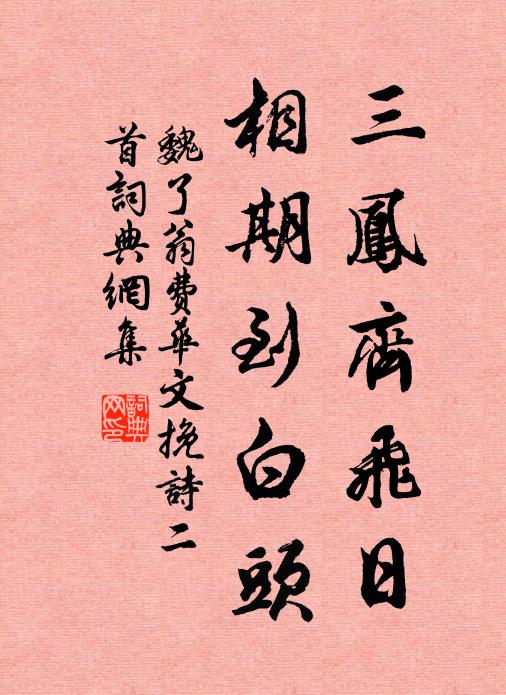 三鳳齊飛日
相期到白頭
魏了翁費華文挽詩二
首詞典網集
詞典
网印